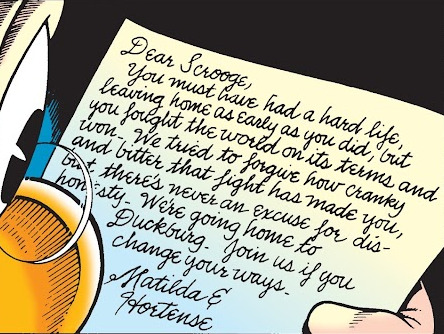 Dear Scrooge,
You must have had a hard life,
leaving home as early as you did, but
you fought the world on its terms and
won- We tried to forgive how cranky
and bitter that fight has made you,
but there's never an excuse for dis-
honesty- We're going home to
Duckburg- Join us if you
change your ways-
Matilda &
Hortense